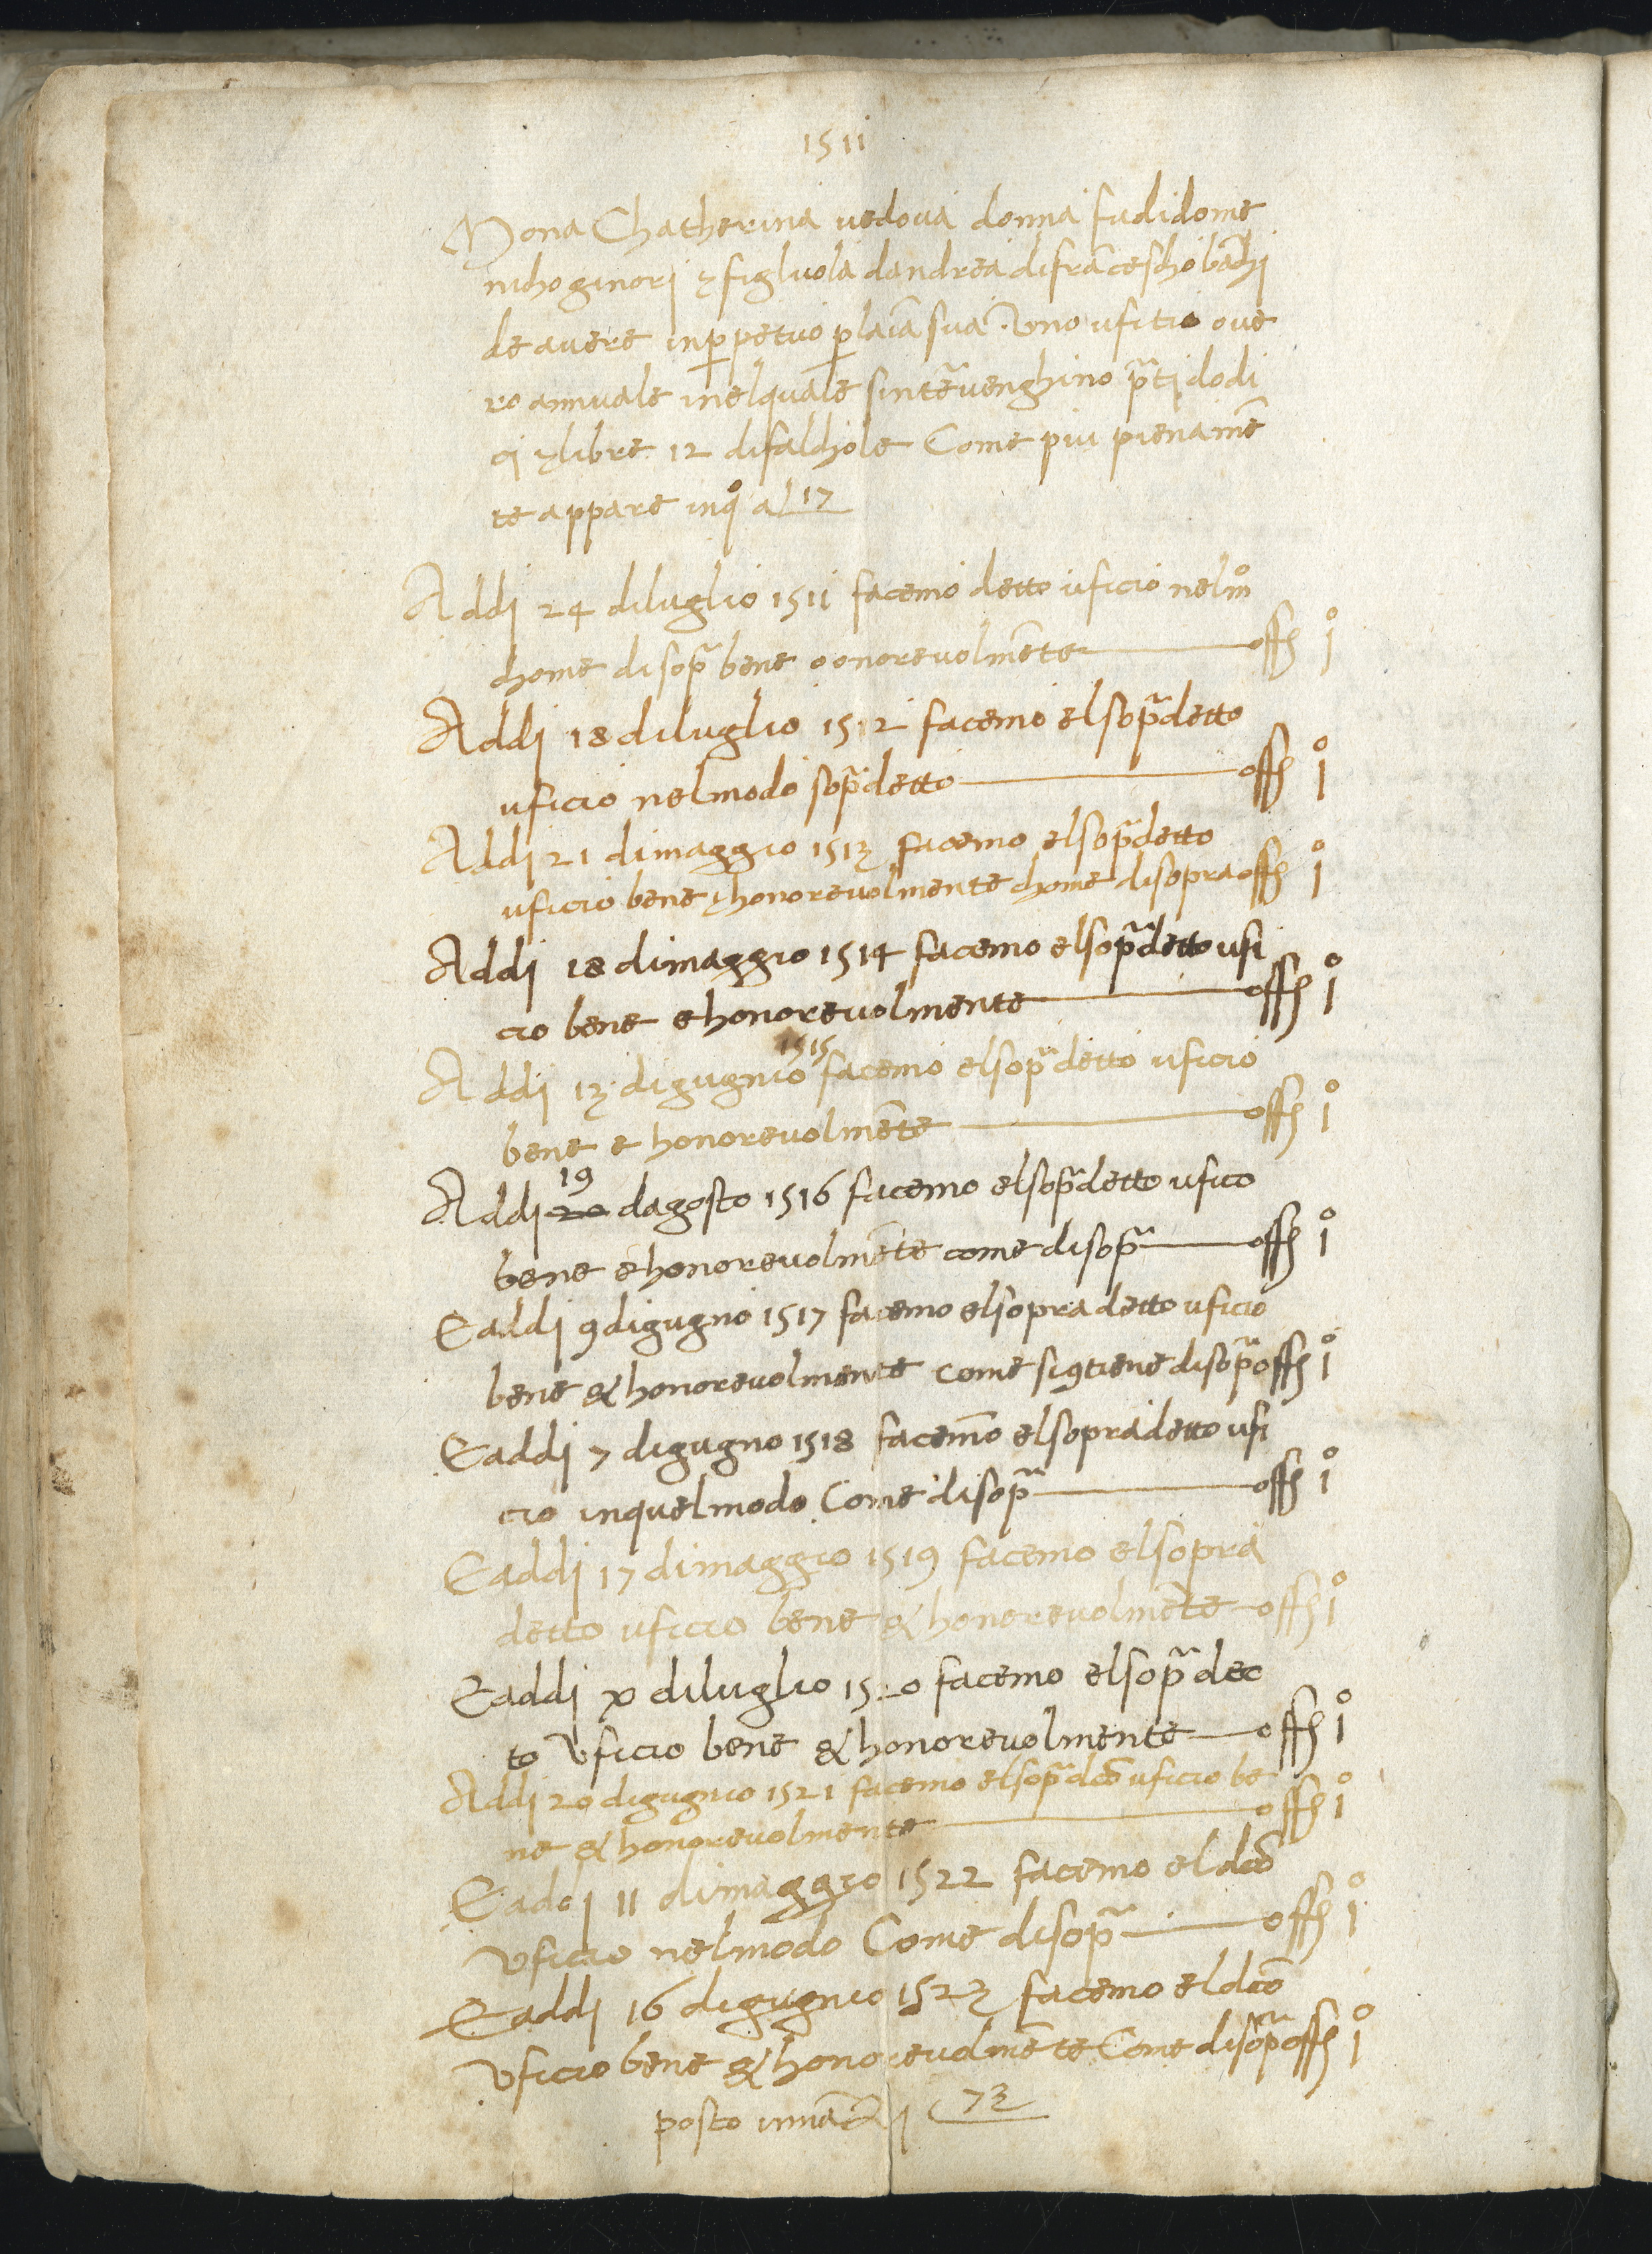 1511
Mona Chatherina vedova donna fu di dome
nicho ginorj & figluola dandrea di frācescho bāchi
de avere inp̱petuo p̱ laīa sua · Uno ufitio ove
ro annuale inelquale sintēvenghino p̄tj dodi
cj & libre 12 di falchole Come piu pienamē
te appare inq̊ al 17
Addj 24 di luglio 1511 facemo detto uficio nel m̊
chome di sop̄ bene o onorevolmēte — offj i̊
Addj 18 di luglio 1512 facemo el sop̄detto
uficio nel modo sop̄detto — offj i̊
Addj 21 di maggio 1513 facemo el sop̄detto
uficio bene & honorevolmente chome di sopra offj i̊
Addj 18 di maggio 1514 facemo el sop̄detto ufi
cio bene e honorevolmente — offj i̊
Addj 13 di gugnio 1515 facemo el sop̄detto uficio
bene e honorevolmēte — offj i̊
Addj 20 19 dagosto 1516 facemo el sop̄detto ufico
bene e honorevolmēte come di sop̄ — offj i̊
E addj 9 di gugno 1517 facemo el sopra detto uficio
bene & honorevolmente come si 9tiene di sop̄ offj i̊
E addj 7 di gugno 1518 facem̄o el sopradetto ufi
cio inquel modo Come di sop̄ — offj i̊
E addj 17 di maggio 1519 facemo el sopra
detto uficio bene & honorevolmēte — offj i̊
E addj x di luglio 1520 facemo el sop̄dec
to Uficio bene & honorevolmente — offj i̊
Addj 20 di gugnio 1521 facemo el sop̄dc̄o uficio be
ne & honorevolmente — offj i̊
E addj 11 di maggio 1522 facemo el dc̄o
Uficio nel modo Come di sop̄ — offj i̊
E addj 16 di gugnio 1523 facemo el dc̄o
Uficio bene & honorevolmēte Come di sop̄ offj i̊
posto innāzj 73